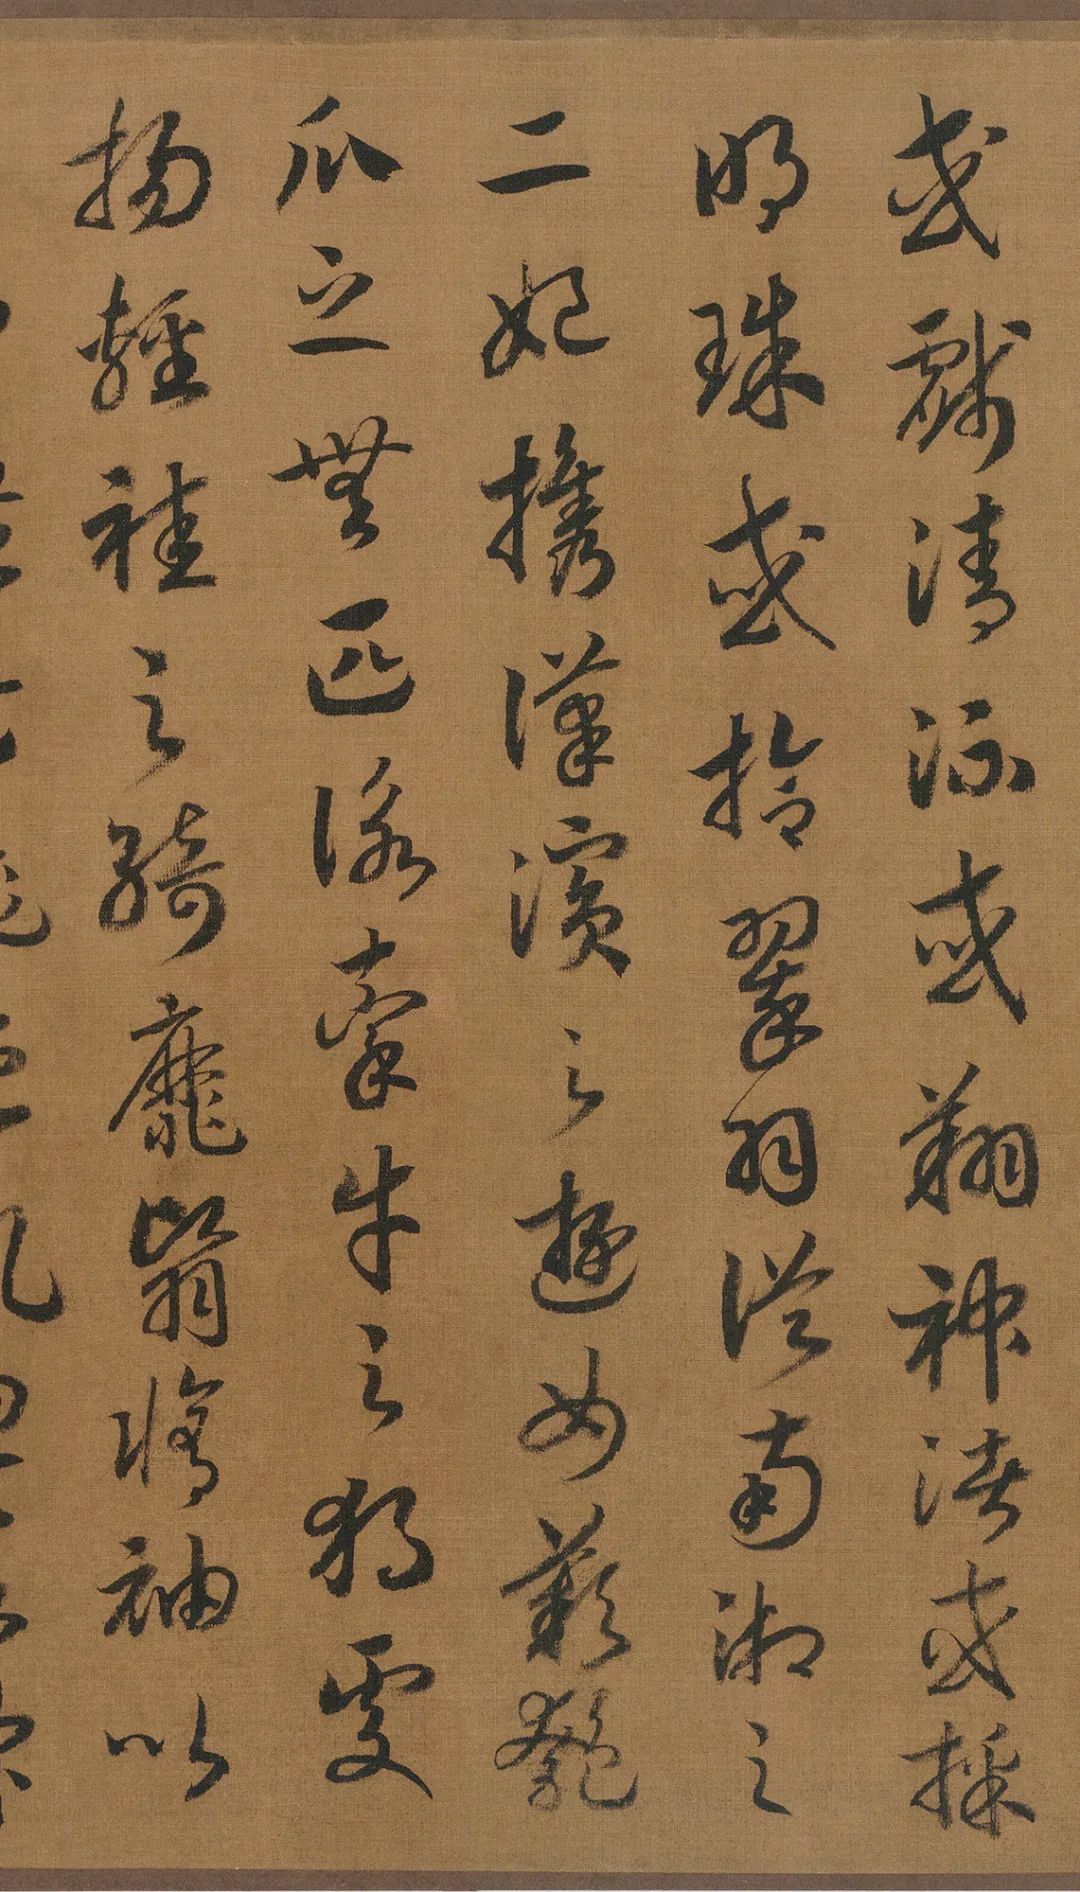 或戲清流或翔神渚或採
明珠或拾翠羽從南湘之
二妃携漢濱之遊女歎匏
瓜之無匹詠牽牛之獨處
揚輕袿之綺靡翳脩袖以